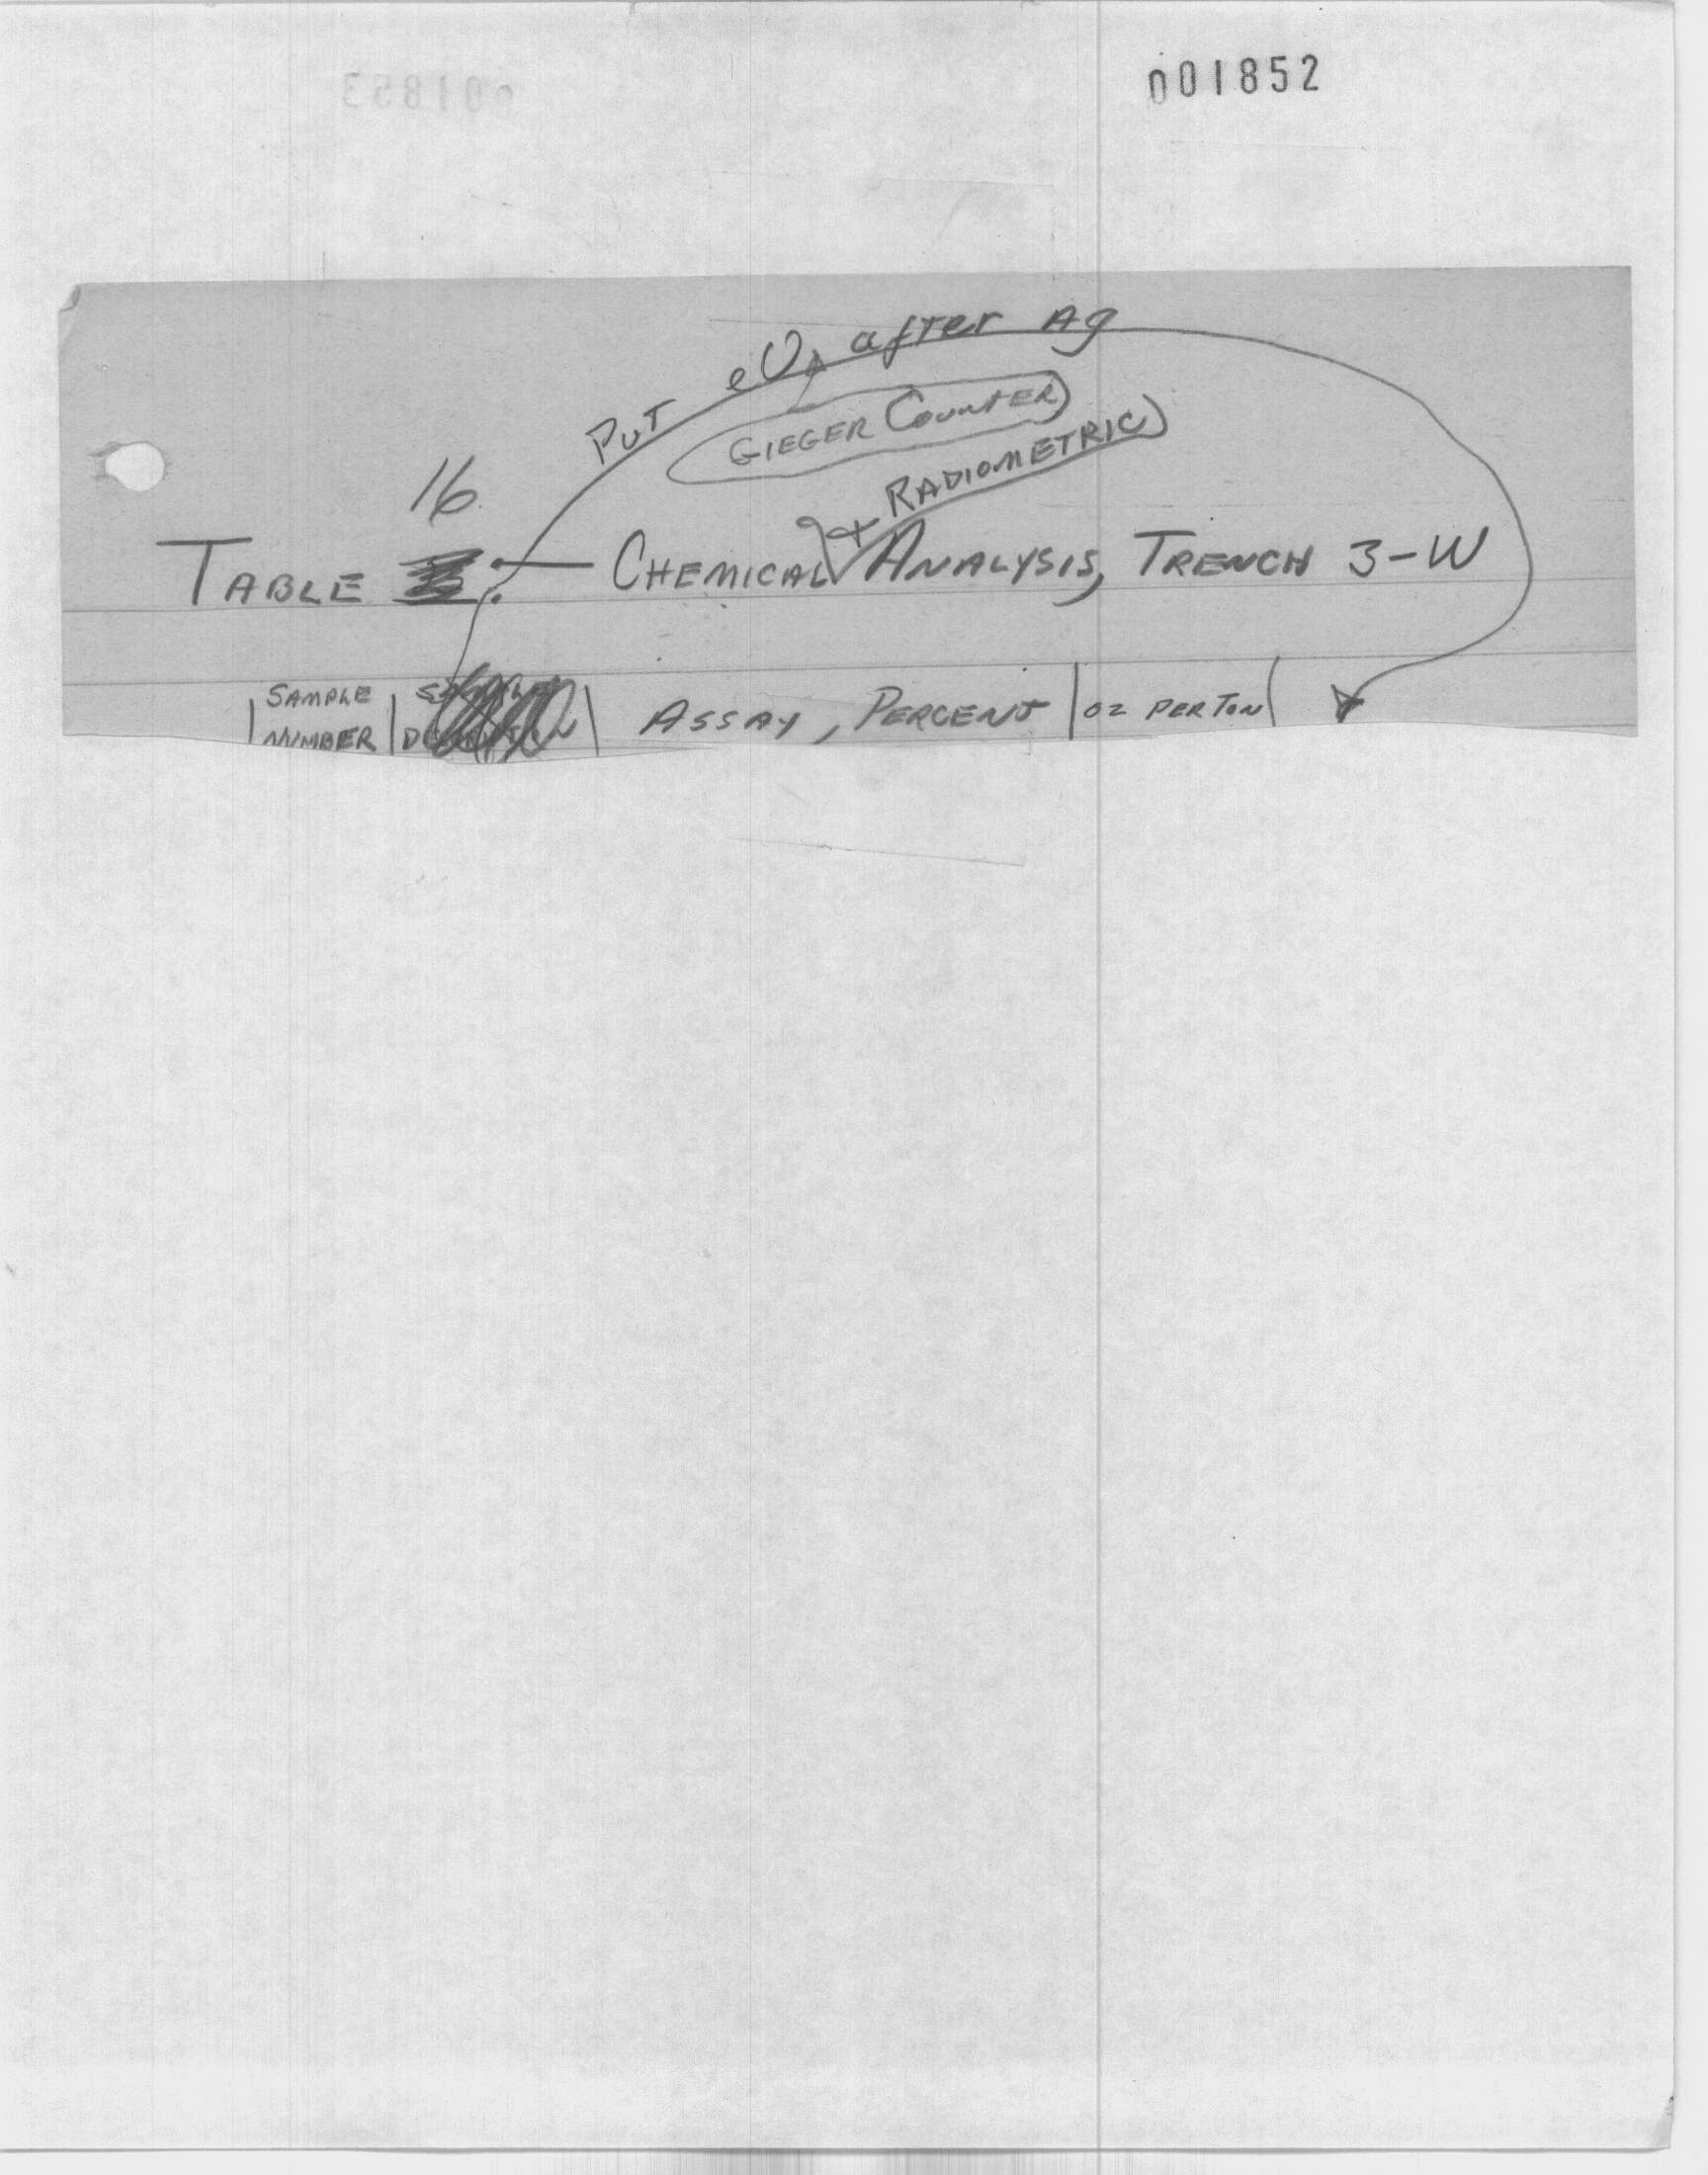 001852
001853
PUT eU, after Ag
GIEGER COUNTER
& RADIOMETRIC
16
TABLE . — CHEMICAL ANALYSIS, TRENCH 3-W
SAMPLE
NUMBER
ASSAY, PERCENT
OZ PER TON